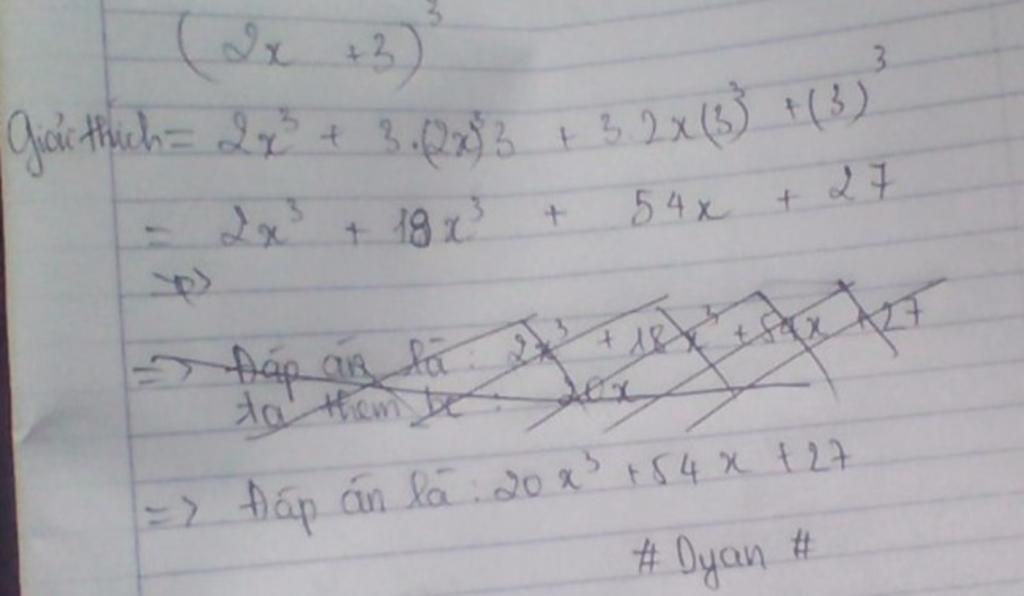 (2x + 3)³
Giải thích = 2x³ + 3.(2x)³3 + 3.2x(3)³ + (3)³
= 2x³ + 18x³ + 54x + 27
=>
=> Đáp án là: 2x³ + 18x³ + 54x + 27
ta them : 20x
=> Đáp án là: 20x³ + 54x + 27
# Dyan #